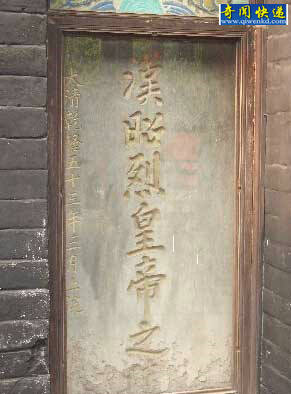 奇闻快递
www.qiwenkd.com
漢昭烈皇帝之
大清乾隆五十三年二月